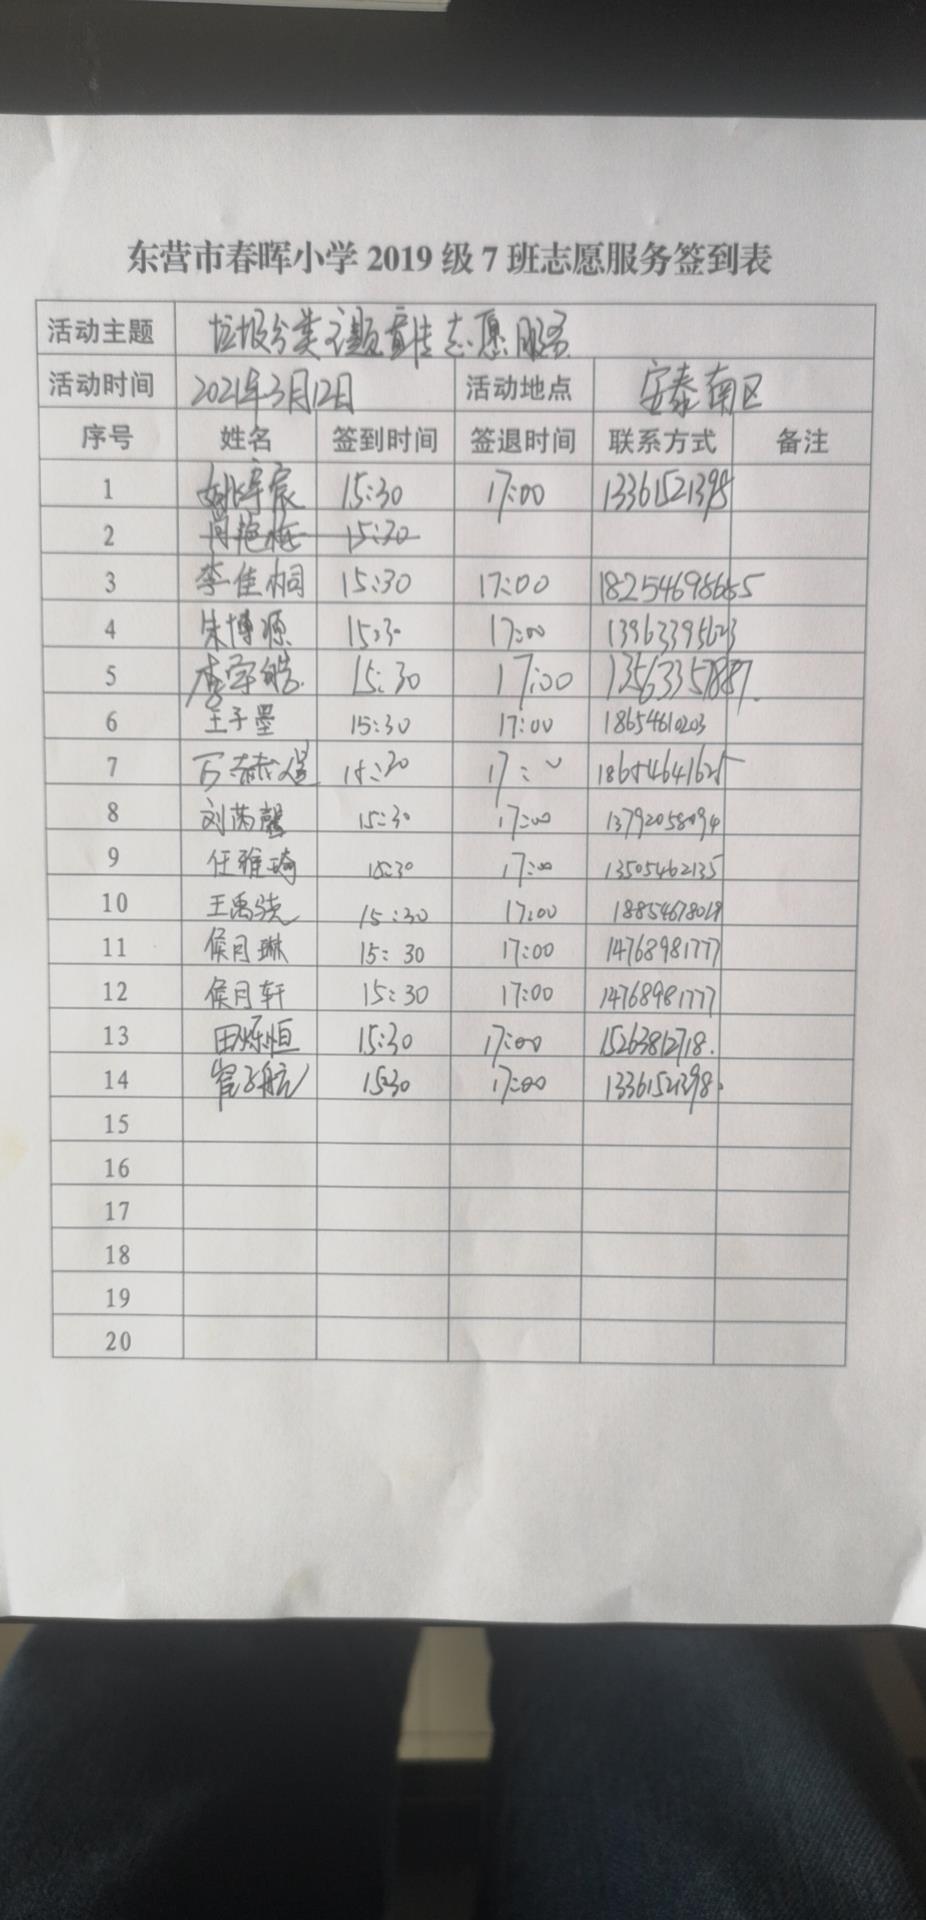 东营市春晖小学 2019 级 7 班志愿服务签到表
活动主题 垃圾分类主题宣传志愿服务
活动时间 2021年3月12日 活动地点 安泰南区
序号 姓名 签到时间 签退时间 联系方式 备注
1 姚宇宸 15:30 17:00 13361521398
2 肖艳梅 15:30
3 李佳桐 15:30 17:00
4 朱博源 15:30 17:00 13963395623
5 李宇皓 15:30 17:00
6 王子墨 15:30 17:00 18654610203
7 15:30 17:00 18654641625
8 刘芮馨 15:30 17:00 13792058094
9 任雅琦 15:30 17:00 13505462135
10 王禹骁 15:30 17:00
11 侯月琳 15:30 17:00 14768981777
12 侯月轩 15:30 17:00 14768981777
13 田烁恒 15:30 17:00 15263812718.
14 15:30 17:00 13361521398.
15
16
17
18
19
20